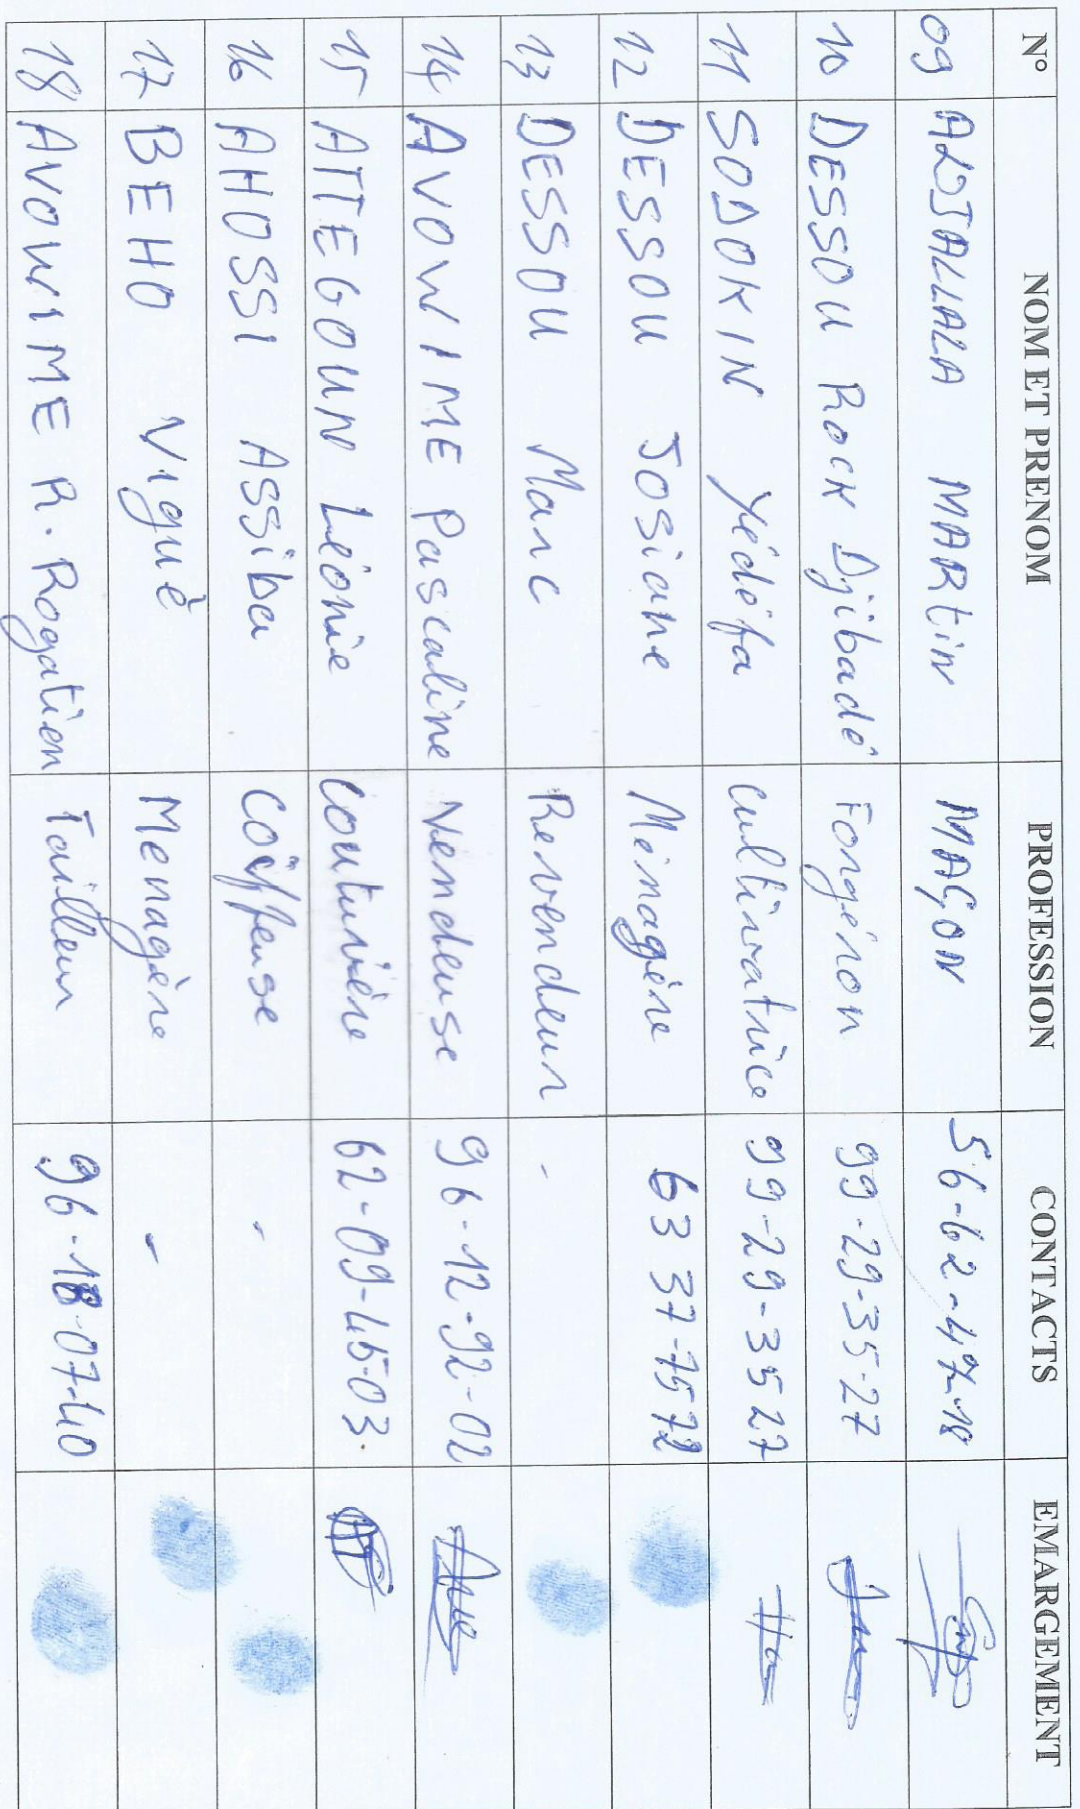 N° NOM ET PRENOM PROFESSION CONTACTS EMARGEMENT
09 MARtiN MAÇON 56-62-47-18
10 DESSOU Rock Djibadé Forgéron 99-29-35-27
11 SODOKIN Yédéfa cultivatrice 99-29-35 27
12 DESSOU Josiane Ménagère 63 37-75 72
13 DESSOU Marc Revendeur -
14 AVOWIME Pascaline Vendeuse 96-12-92-02
15 ATTEGOUN Léonie Couturière 62-09-45-03.
16 AHOSSI Assiba Coiffeuse -
17 BEHO Viguè Menagère -
18 AVOWIME R. Rogatien Tailleur 96-18-07-40